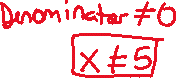 Denominator ≠ 0
x ≠ 5